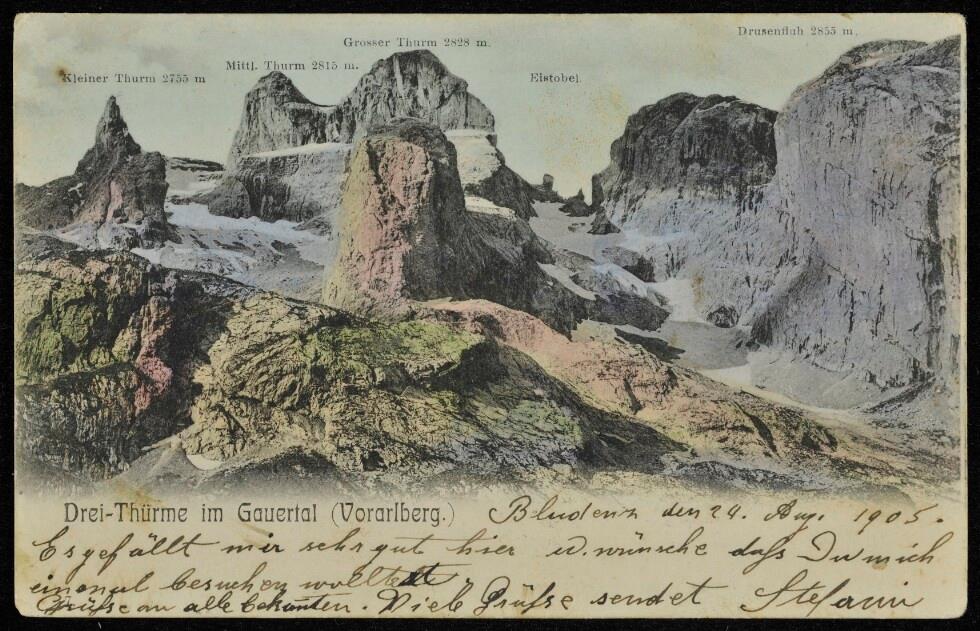 Grosser Thurm 2828 m.
Drusenfluh 2855 m.
Mittl. Thurm 2815 m.
Kleiner Thurm 2755 m
Eistobel.
Drei-Thürme im Gauertal (Vorarlberg.)
Bludenz den 24. Aug. 1905.
Es gefällt mir sehr gut hier u. wünsche daß Du mich
einmal besuchen wolltest
Grüße an alle bekanten. Viele Grüße sendet Stefanie